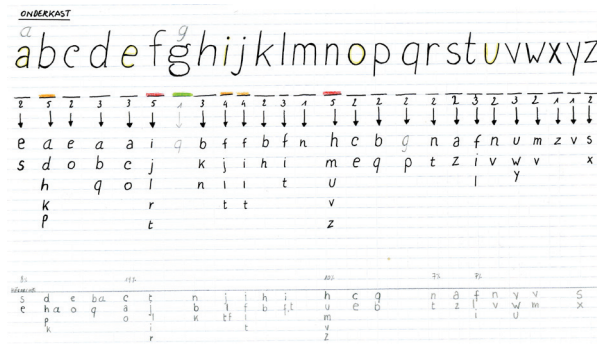 ONDERKAST
a g
abcdefghijklmnopqrstuvwxyz
2 5 2 3 3 5 1 3 4 4 2 3 1 5 2 2 2 2 2 3 2 3 2 1 1 2
e a e a a i g b f f b f n h c b g n a f n u m z v s
s d o b c j k j i h i m e q p t z i v w v x
h q o l n l l t u l y
k r t t v
p t z
s d e b a c t n j i h i h c q n a f n v v s
e h a o q a j b l f b f t u e b t z l v w m x
p o l k t f i m i u
k i t v
r z